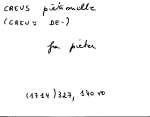 CREUS pièternelle
(CREUS DE-)
fa pieter
(1714) 327, 140 vo